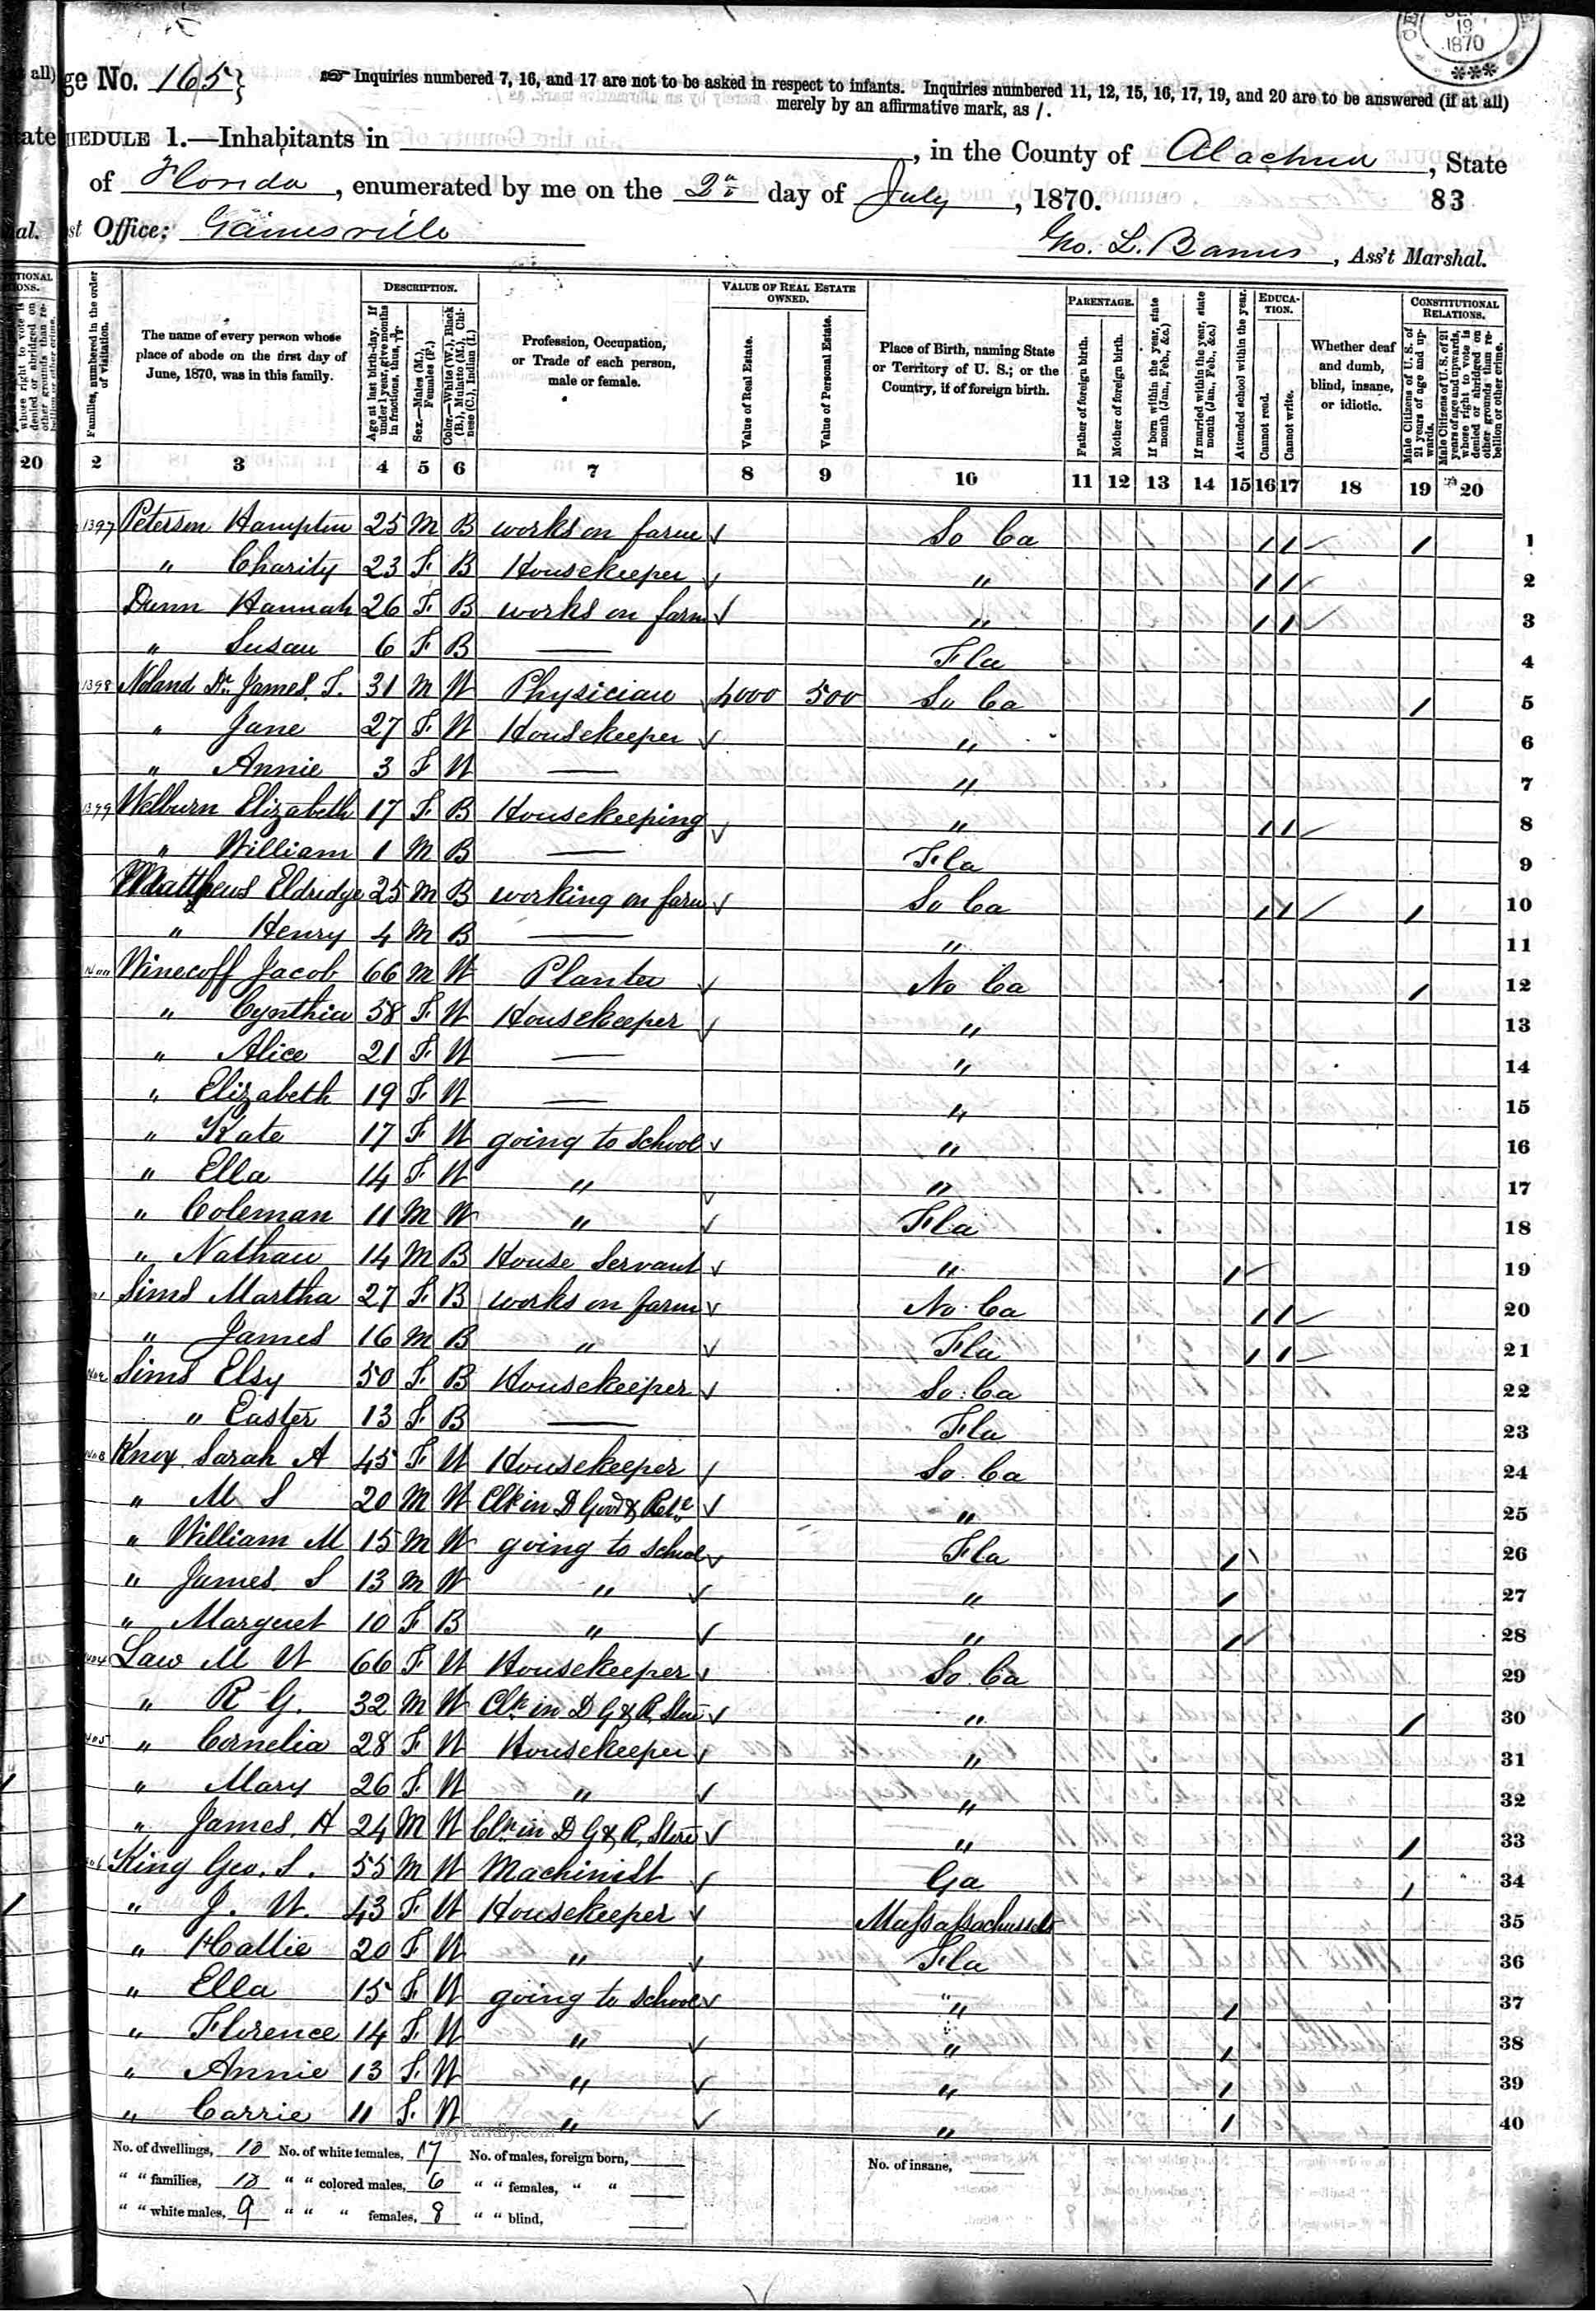 19
1870
***
ge No. 165}
Inquiries numbered 7, 16, and 17 are not to be asked in respect to infants. Inquiries numbered 11, 12, 15, 16, 17, 19, and 20 are to be answered (if at all)
merely by an affirmative mark, as /.
HEDULE 1.—Inhabitants in , in the County of Alachua, State
of Florida, enumerated by me on the 2d day of July, 1870.
83
st Office: Gainesville
Geo. L. Barnes, Ass't Marshal.
Families, numbered in the order of visitation.
The name of every person whose place of abode on the first day of June, 1870, was in this family.
DESCRIPTION.
Age at last birth-day. If under 1 year, give months in fractions, thus,
Sex.—Males (M.), Females (F.)
Color.—White (W.), Black (B.), Mulatto (M.), Chinese (C.), Indian (I.)
Profession, Occupation, or Trade of each person, male or female.
VALUE OF REAL ESTATE OWNED.
Value of Real Estate.
Value of Personal Estate.
Place of Birth, naming State or Territory of U. S.; or the Country, if of foreign birth.
PARENTAGE.
Father of foreign birth.
Mother of foreign birth.
If born within the year, state month (Jan., Feb., &c.)
If married within the year, state month (Jan., Feb., &c.)
Attended school within the year.
EDUCATION.
Cannot read.
Cannot write.
Whether deaf and dumb, blind, insane, or idiotic.
CONSTITUTIONAL RELATIONS.
Male Citizens of U. S. of 21 years of age and upwards.
Male Citizens of U. S. of 21 years of age and upwards, whose right to vote is denied or abridged on other grounds than rebellion or other crime.
20 2 3 4 5 6 7 8 9 10 11 12 13 14 15 16 17 18 19 20
1397 Peterson Hampton 25 M B works on farm So Ca / / / 1
" Charity 23 F B Housekeeper " / / 2
Dunn Hannah 26 F B works on farm " / / 3
" Susan 6 F B — Fla 4
1398 Noland Dr. James T. 31 M W Physician 4000 500 So Ca / 5
" Jane 27 F W Housekeeper " 6
" Annie 3 F W — " 7
1399 Welburn Elizabeth 17 F B Housekeeping " / / 8
" William 1 M B — Fla 9
Matthews Eldridge 25 M B working on farm So Ca / / / 10
" Henry 4 M B — " 11
1400 Winecoff Jacob 66 M W Planter No Ca / 12
" Cynthia 58 F W Housekeeper " 13
" Alice 21 F W — " 14
" Elizabeth 19 F W — " 15
" Kate 17 F W going to school " 16
" Ella 14 F W " " 17
" Coleman 11 M W " Fla 18
" Nathan 14 M B House Servant " / 19
Sims Martha 27 F B works on farm No. Ca / / 20
" James 16 M B " Fla / / 21
Sims Elsy 50 F B Housekeeper So. Ca 22
" Easter 13 F B — Fla 23
Knox Sarah A 45 F W Housekeeper So. Ca 24
" M S 20 M W Clk in D Good & " 25
" William M 15 M W going to school Fla / 26
" James S 13 M W " " / 27
" Marguret 10 F B " " / 28
Law M W 66 F W Housekeeper So. Ca 29
" R G. 32 M W Clk in D G & R. Store " / 30
" Cornelia 28 F W Housekeeper " 31
" Mary 26 F W " " 32
" James H 24 M W Clk in D G & R. Store " / 33
King Geo. S. 55 M W Machinist Ga / 34
" J. W. 43 F W Housekeeper Massassachusetts 35
" Hallie 20 F W " Fla 36
" Ella 15 F W going to school " / 37
" Florence 14 F W " " / 38
" Annie 13 F W " " / 39
" Carrie 11 F W " " / 40
No. of dwellings, 10 No. of white females, 17 No. of males, foreign born, No. of insane,
" " families, 10 " " colored males, 6 " " females, " "
" " white males, 9 " " " females, 8 " " blind,